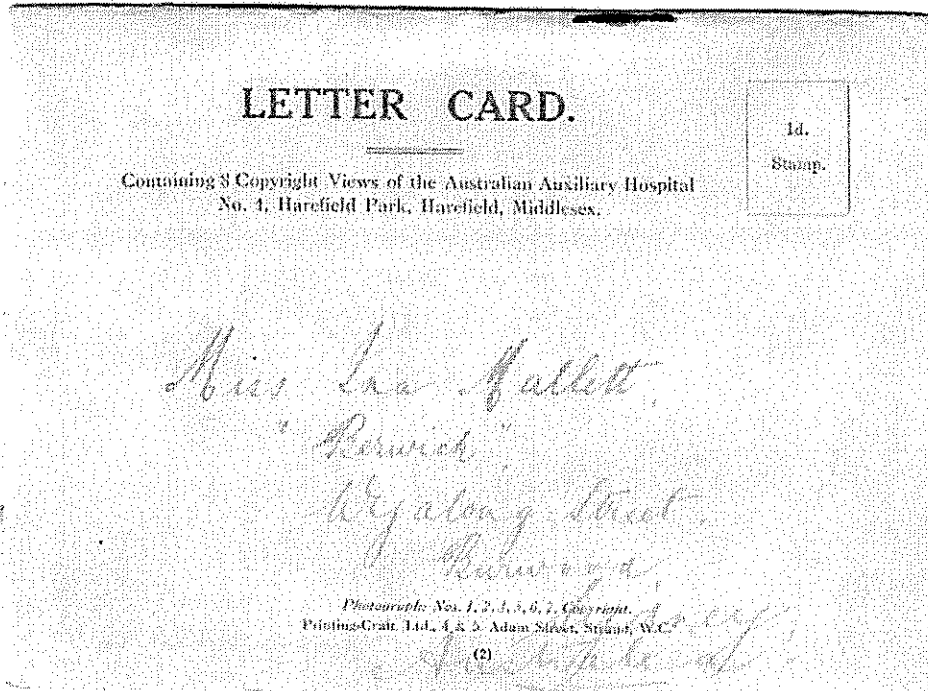 LETTER CARD.
1d.
Stamp.
Containing 8 Copyright Views of the Australian Auxiliary Hospital
No. 1, Harefield Park, Harefield, Middlesex.
Miss Mallett,
"Berwick",
Wyalong Street,
Burwood,
Sydney,
Photographs Nos. 1, 2, 3, 5, 6, 7, Copyright.
Printing-Craft, Ltd., 4 & 5, Adam Street, Strand, W.C.
(2)
Australia